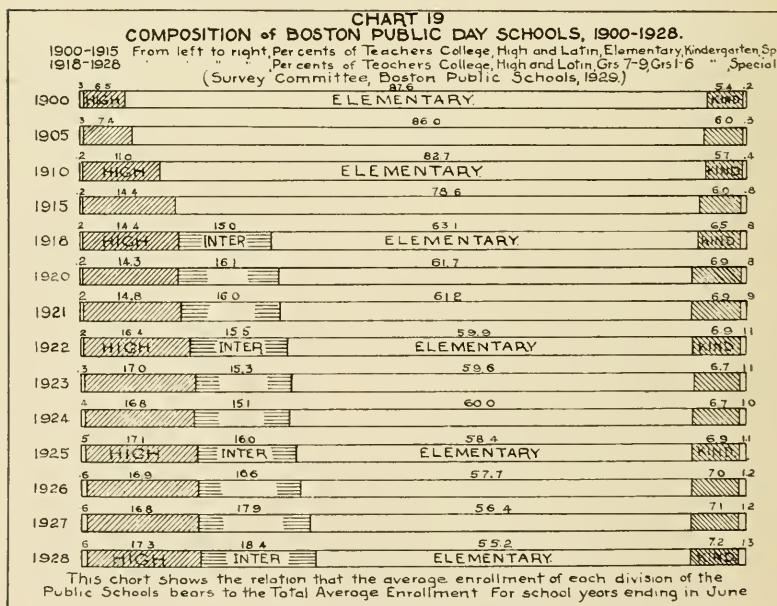 CHART 19
COMPOSITION of BOSTON PUBLIC DAY SCHOOLS, 1900-1928.
1900-1915 From left to right, Per cents of Teachers College, High and Latin, Elementary, Kindergarten, Sp
1918-1928 " " " " Per cents of Teachers College, High and Latin, Grs 7-9, Grs 1-6 " , Special
(Survey Committee, Boston Public Schools, 1929.)
.3 6.5 87.6 5.4 .2
1900 HIGH ELEMENTARY. KIND
.3 7.4 86.0 6.0 .3
1905
.2 11.0 82.7 5.7 .4
1910 HIGH ELEMENTARY. KIND
.2 14.4 78.6 6.0 .8
1915
.2 14.4 15.0 63.1 6.5 .8
1918 HIGH INTER ELEMENTARY. KIND.
.2 14.3 16.1 61.7 6.9 .8
1920
.2 14.8 16.0 61.2 6.9 .9
1921
.2 16.4 15.5 59.9 6.9 1.1
1922 HIGH INTER ELEMENTARY KIND
.3 17.0 15.3 59.6 6.7 1.1
1923
.4 16.8 15.1 60.0 6.7 1.0
1924
.5 17.1 16.0 58.4 6.9 1.1
1925 HIGH INTER ELEMENTARY KIND.
.6 16.9 16.6 57.7 7.0 1.2
1926
.6 16.8 17.9 56.4 7.1 1.2
1927
.6 17.3 18.4 55.2 7.2 1.3
1928 HIGH INTER ELEMENTARY. KIND
This chart shows the relation that the average enrollment of each division of the
Public Schools bears to the Total Average Enrollment For school years ending in June